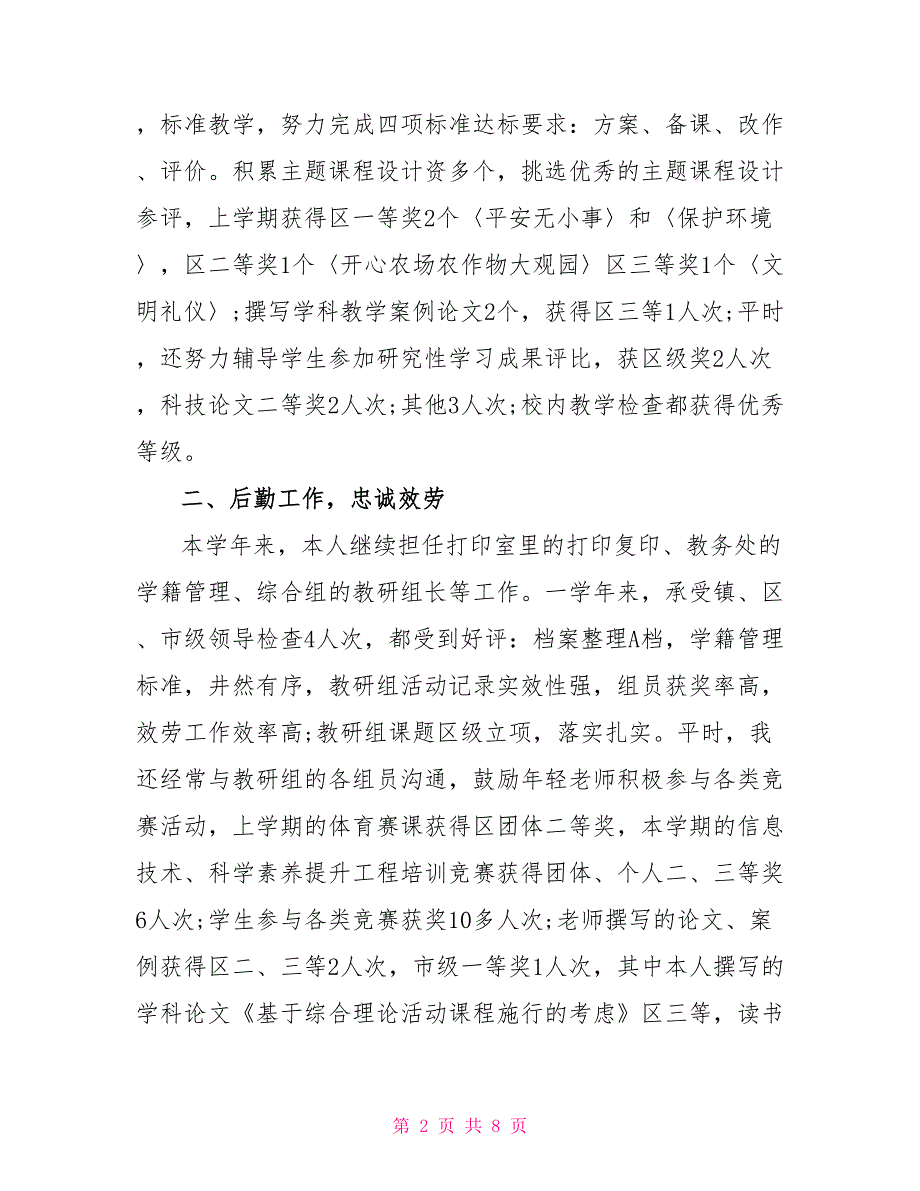 ，标准教学，努力完成四项标准达标要求：方案、备课、改作
、评价。积累主题课程设计资多个，挑选优秀的主题课程设计
参评，上学期获得区一等奖2个〈平安无小事〉和〈保护环境
〉，区二等奖1个〈开心农场农作物大观园〉区三等奖1个〈文
明礼仪〉;撰写学科教学案例论文2个，获得区三等1人次;平时
，还努力辅导学生参加研究性学习成果评比，获区级奖2人次
，科技论文二等奖2人次;其他3人次;校内教学检查都获得优秀
等级。
二、后勤工作，忠诚效劳
本学年来，本人继续担任打印室里的打印复印、教务处的
学籍管理、综合组的教研组长等工作。一学年来，承受镇、区
、市级领导检查4人次，都受到好评：档案整理A档，学籍管理
标准，井然有序，教研组活动记录实效性强，组员获奖率高，
效劳工作效率高;教研组课题区级立项，落实扎实。平时，我
还经常与教研组的各组员沟通，鼓励年轻老师积极参与各类竞
赛活动，上学期的体育赛课获得区团体二等奖，本学期的信息
技术、科学素养提升工程培训竞赛获得团体、个人二、三等奖
6人次;学生参与各类竞赛获奖10多人次;老师撰写的论文、案
例获得区二、三等2人次，市级一等奖1人次，其中本人撰写的
学科论文《基于综合理论活动课程施行的考虑》区三等，读书
第 2 页 共 8 页